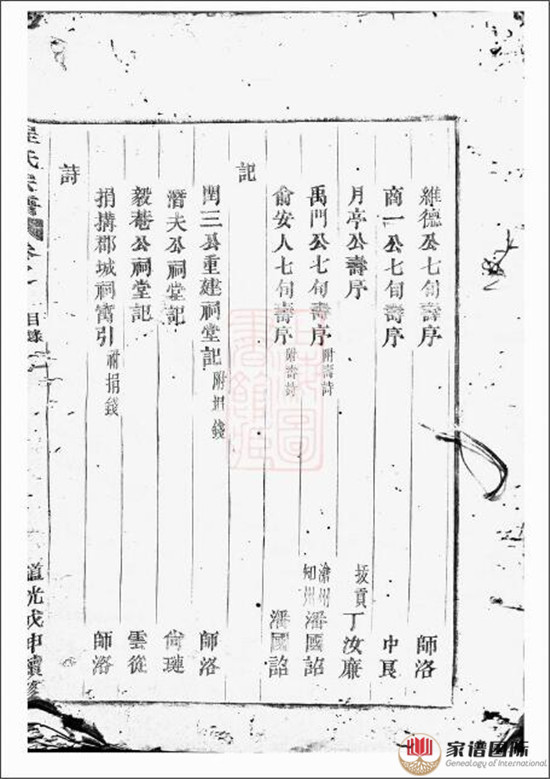 維德公七旬壽序 師洛
商一公七旬壽序 中艮
月亭公壽序 拔貢 丁汝廉
禹門公七旬壽序 附壽詩 澹州知州 潘國詔
俞安人七旬壽序 附壽詩 潘國詔
記
閏三公重建祠堂記 附捐錢 師洛
潛夫公祠堂記 尙璉
毅菴公祠堂記 雲從
捐搆郡城祠寓引 附捐錢 師洛
詩
氏宗譜 目錄 道光戊申續修
家谱国际
Genealogy of International